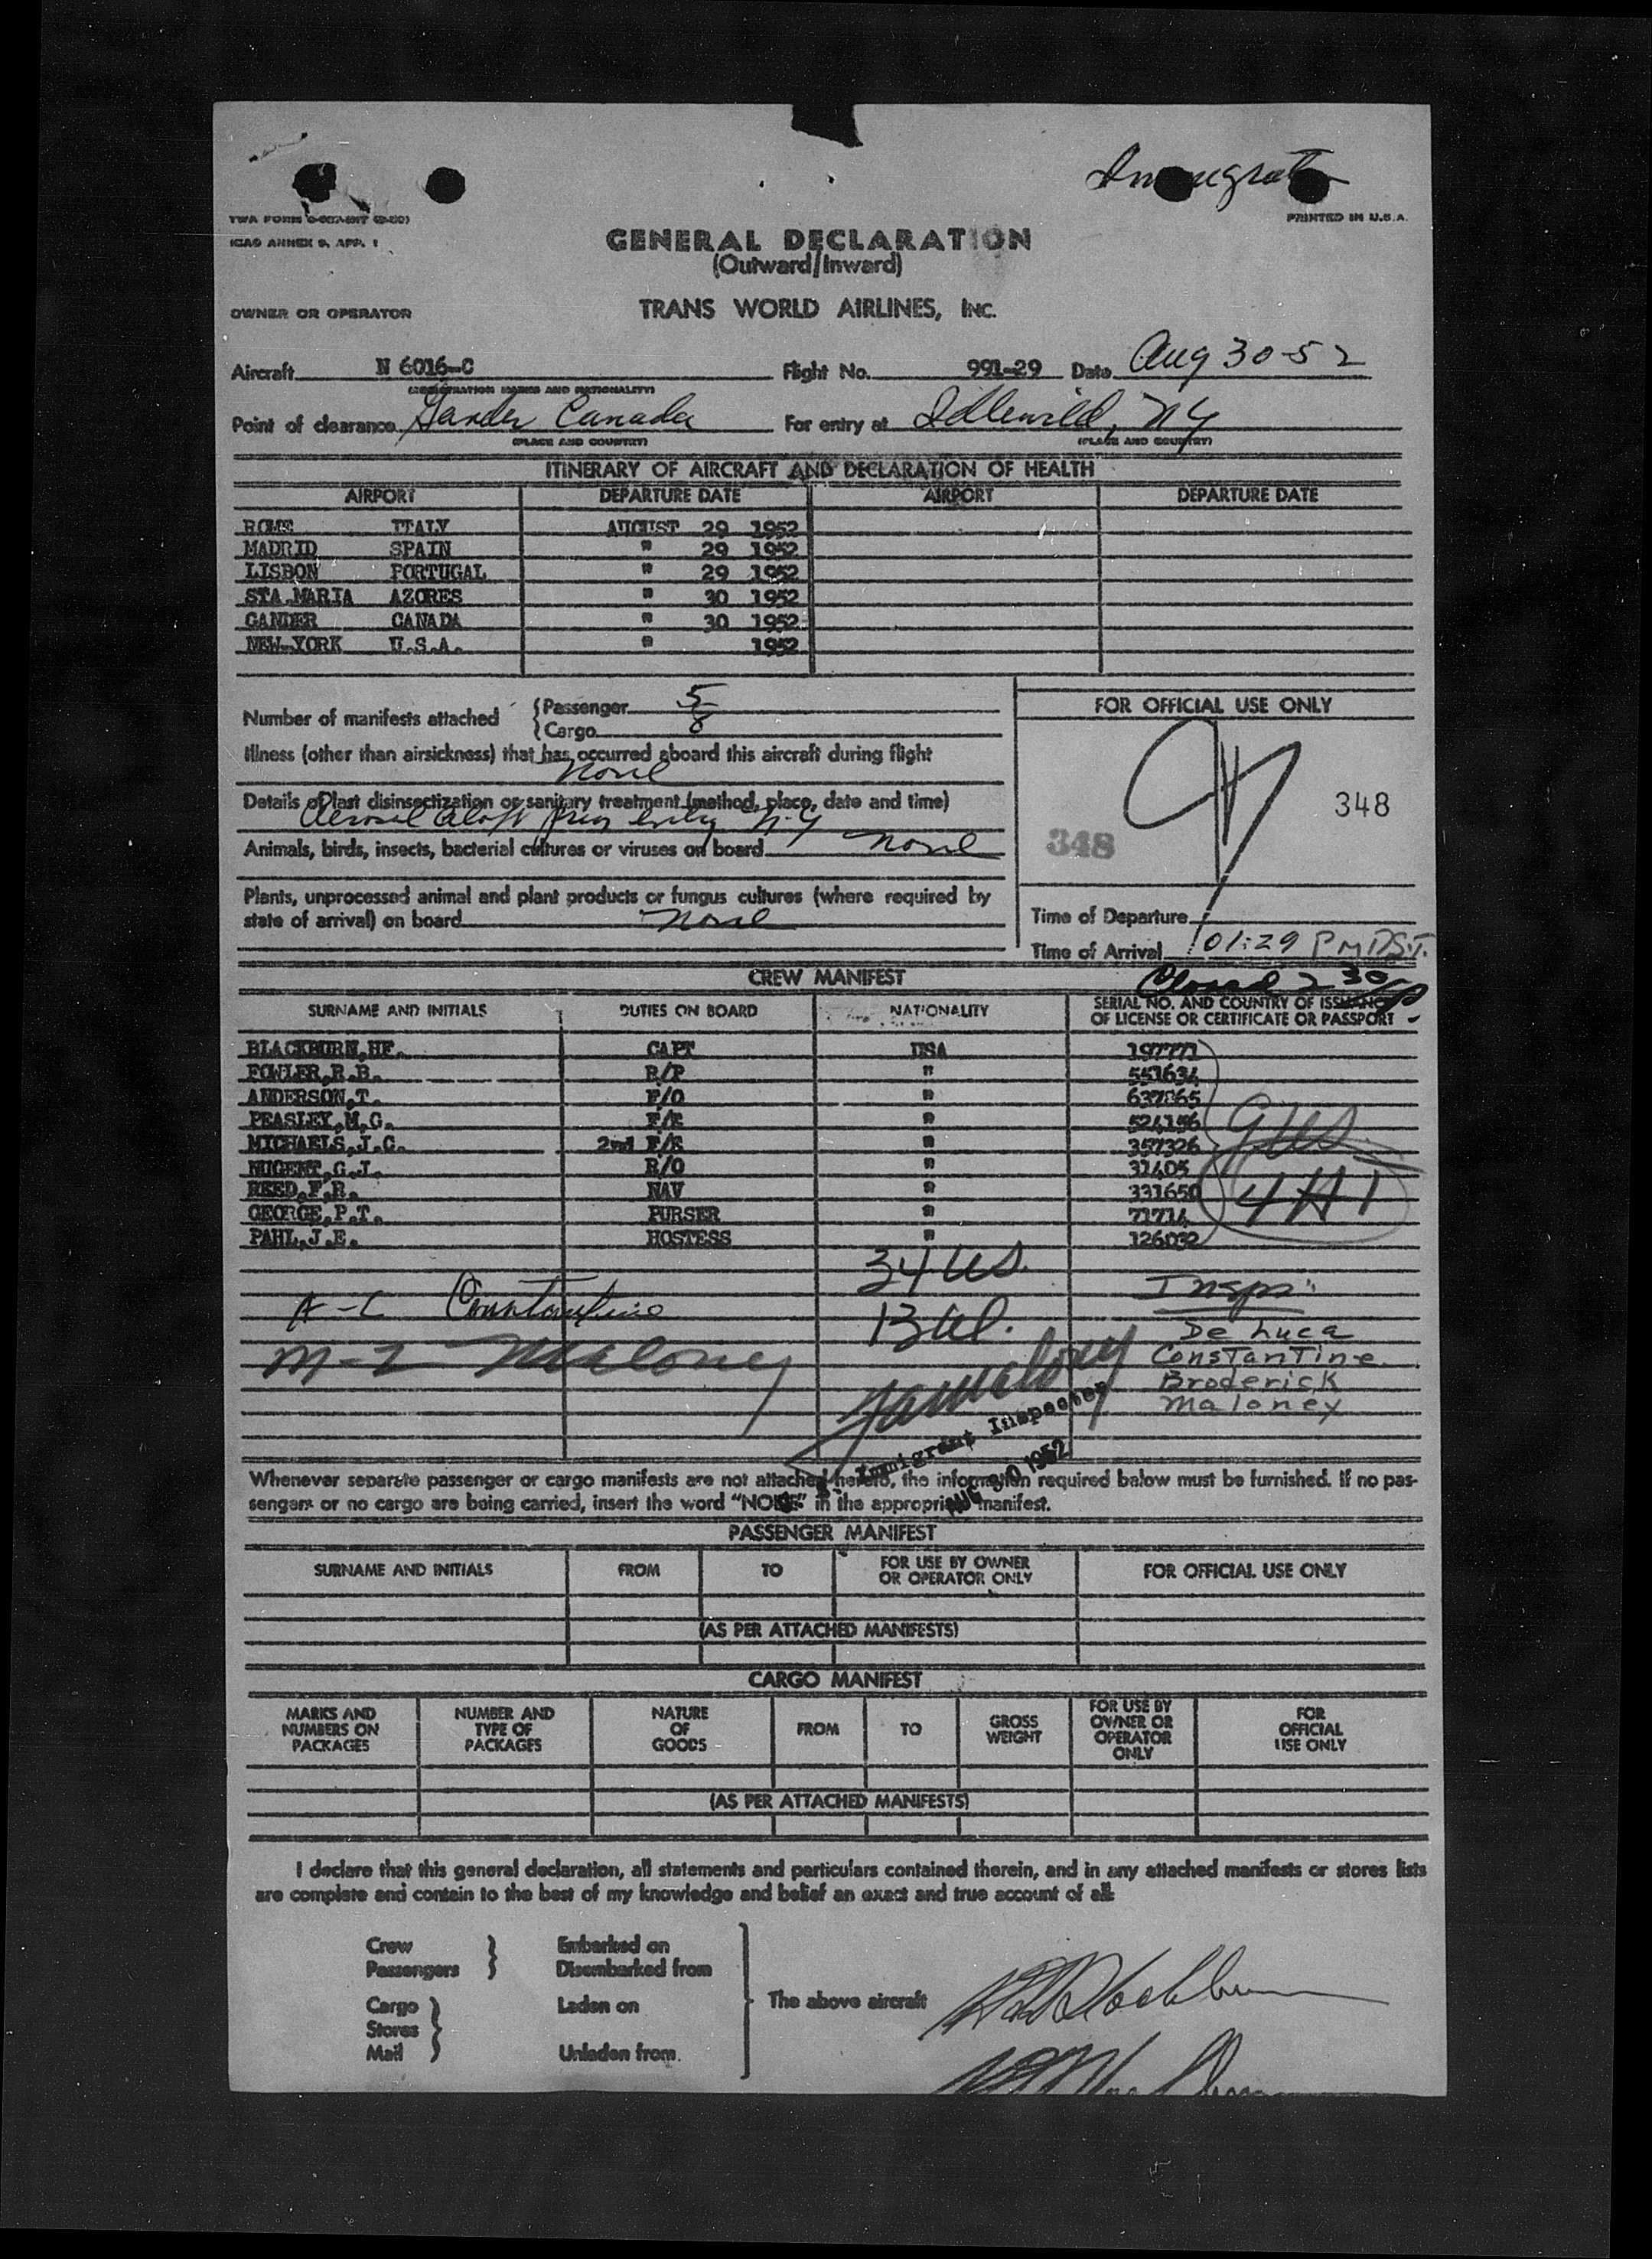 Immigrat
TWA FORM
PRINTED IN U.S.A.
ICAO ANNEX 9, APP. 1
GENERAL DECLARATION
(Outward/Inward)
OWNER OR OPERATOR
TRANS WORLD AIRLINES, INC.
Aircraft N 6016-C Flight No. 991-29 Date Aug 30-52
(REGISTRATION MARKS AND NATIONALITY)
Point of clearance Gander Canada For entry at Idlewild, NY
(PLACE AND COUNTRY) (PLACE AND COUNTRY)
ITINERARY OF AIRCRAFT AND DECLARATION OF HEALTH
AIRPORT DEPARTURE DATE AIRPORT DEPARTURE DATE
ROME ITALY AUGUST 29 1952
MADRID SPAIN " 29 1952
LISBON PORTUGAL " 29 1952
STA.MARIA AZORES " 30 1952
GANDER CANADA " 30 1952
NEW-YORK U.S.A. " 1952
Number of manifests attached {Passenger 5
{Cargo 8
FOR OFFICIAL USE ONLY
348
348
Illness (other than airsickness) that has occurred aboard this aircraft during flight
None
Details of last disinsectization or sanitary treatment (method, place, date and time)
Aerosol aloft prior entry N.Y
Animals, birds, insects, bacterial cultures or viruses on board None
Plants, unprocessed animal and plant products or fungus cultures (where required by
state of arrival) on board None
Time of Departure
Time of Arrival 01:29 P.M D.S.T.
CREW MANIFEST
Closed 2 30 P
SURNAME AND INITIALS DUTIES ON BOARD NATIONALITY SERIAL NO. AND COUNTRY OF ISSUANCE
OF LICENSE OR CERTIFICATE OR PASSPORT
BLACKBURN,HF. CAPT USA 197771
FOWLER,R.B. R/P " 551634
ANDERSON,T. F/O " 637865
PEASLEY,M.G. F/E " 524156
MICHAELS,J.C. 2nd F/E " 357326
NUGENT,G.J. R/O " 31405
REED,F.R. NAV " 331650
GEORGE,P.T. PURSER " 71714
PAHL,J.E. HOSTESS " 126032
9 US
4 HT
34 US.
Insps:
A-L Constantine
13 Al.
De Luca
M-Z Maloney
Constantine
Broderick
Maloney
Immigrant Inspector
AUG 30 1952
Whenever separate passenger or cargo manifests are not attached hereto, the information required below must be furnished. If no pas-
sengers or no cargo are being carried, insert the word "NONE" in the appropriate manifest.
PASSENGER MANIFEST
SURNAME AND INITIALS FROM TO FOR USE BY OWNER OR OPERATOR ONLY FOR OFFICIAL USE ONLY
(AS PER ATTACHED MANIFESTS)
CARGO MANIFEST
MARKS AND NUMBERS ON PACKAGES NUMBER AND TYPE OF PACKAGES NATURE OF GOODS FROM TO GROSS WEIGHT FOR USE BY OWNER OR OPERATOR ONLY FOR OFFICIAL USE ONLY
(AS PER ATTACHED MANIFESTS)
I declare that this general declaration, all statements and particulars contained therein, and in any attached manifests or stores lists
are complete and contain to the best of my knowledge and belief an exact and true account of all:
Crew } Embarked on }
Passengers } Disembarked from
Cargo } Laden on The above aircraft HF Blackburn
Stores
Mail } Unladen from